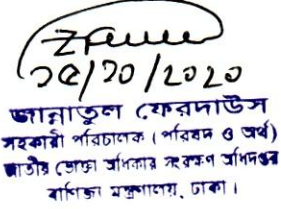 ১৫/১০/২০২০
জান্নাতুল ফেরদাউস
সহকারী পরিচালক (পরিষদ ও অর্থ)
জাতীয় ভোক্তা অধিকার সংরক্ষণ অধিদপ্তর
বাণিজ্য মন্ত্রণালয়, ঢাকা।